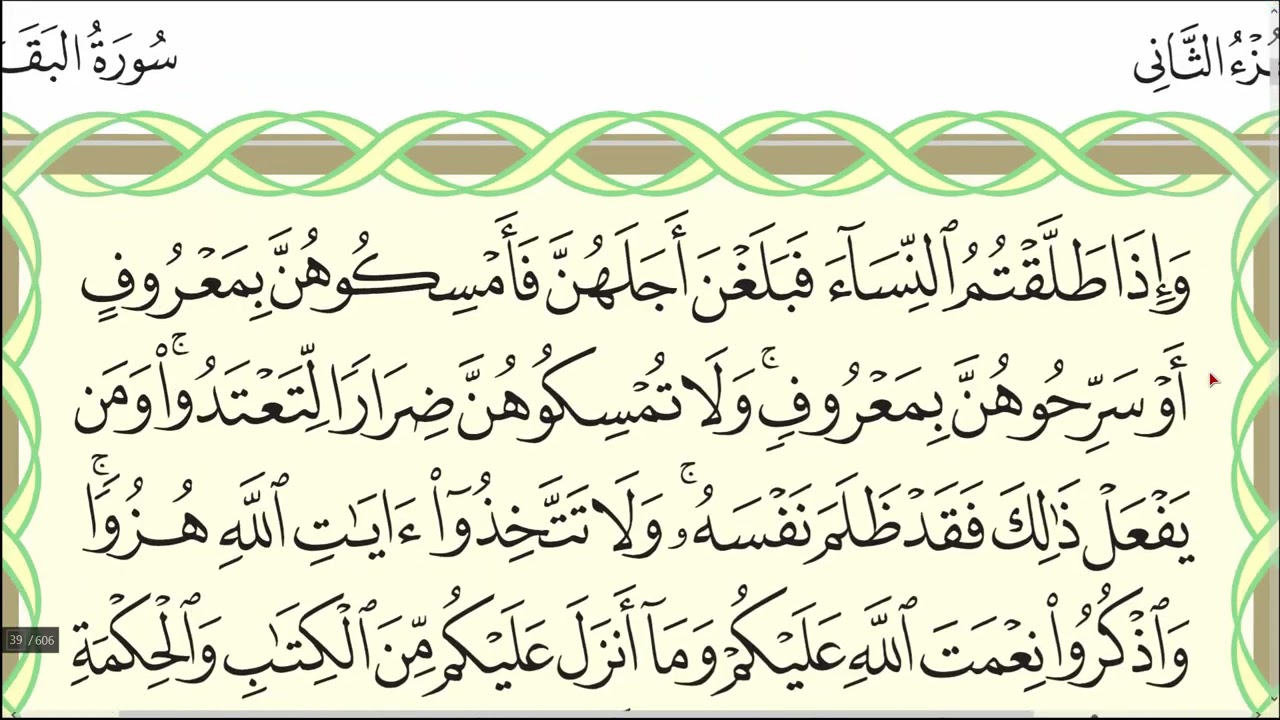 سُورَةُ البَقَ
ـزءُ الثَّانِى
وَإِذَا طَلَّقْتُمُ ٱلنِّسَآءَ فَبَلَغْنَ أَجَلَهُنَّ فَأَمْسِكُوهُنَّ بِمَعْرُوفٍ
أَوْ سَرِّحُوهُنَّ بِمَعْرُوفٍۚ وَلَا تُمْسِكُوهُنَّ ضِرَارًا لِّتَعْتَدُوا۟ۚ وَمَن
يَفْعَلْ ذَٰلِكَ فَقَدْ ظَلَمَ نَفْسَهُۥۚ وَلَا تَتَّخِذُوٓا۟ ءَايَـٰتِ ٱللَّهِ هُزُوًاۚ
وَٱذْكُرُوا۟ نِعْمَتَ ٱللَّهِ عَلَيْكُمْ وَمَآ أَنزَلَ عَلَيْكُم مِّنَ ٱلْكِتَـٰبِ وَٱلْحِكْمَةِ
39 / 606